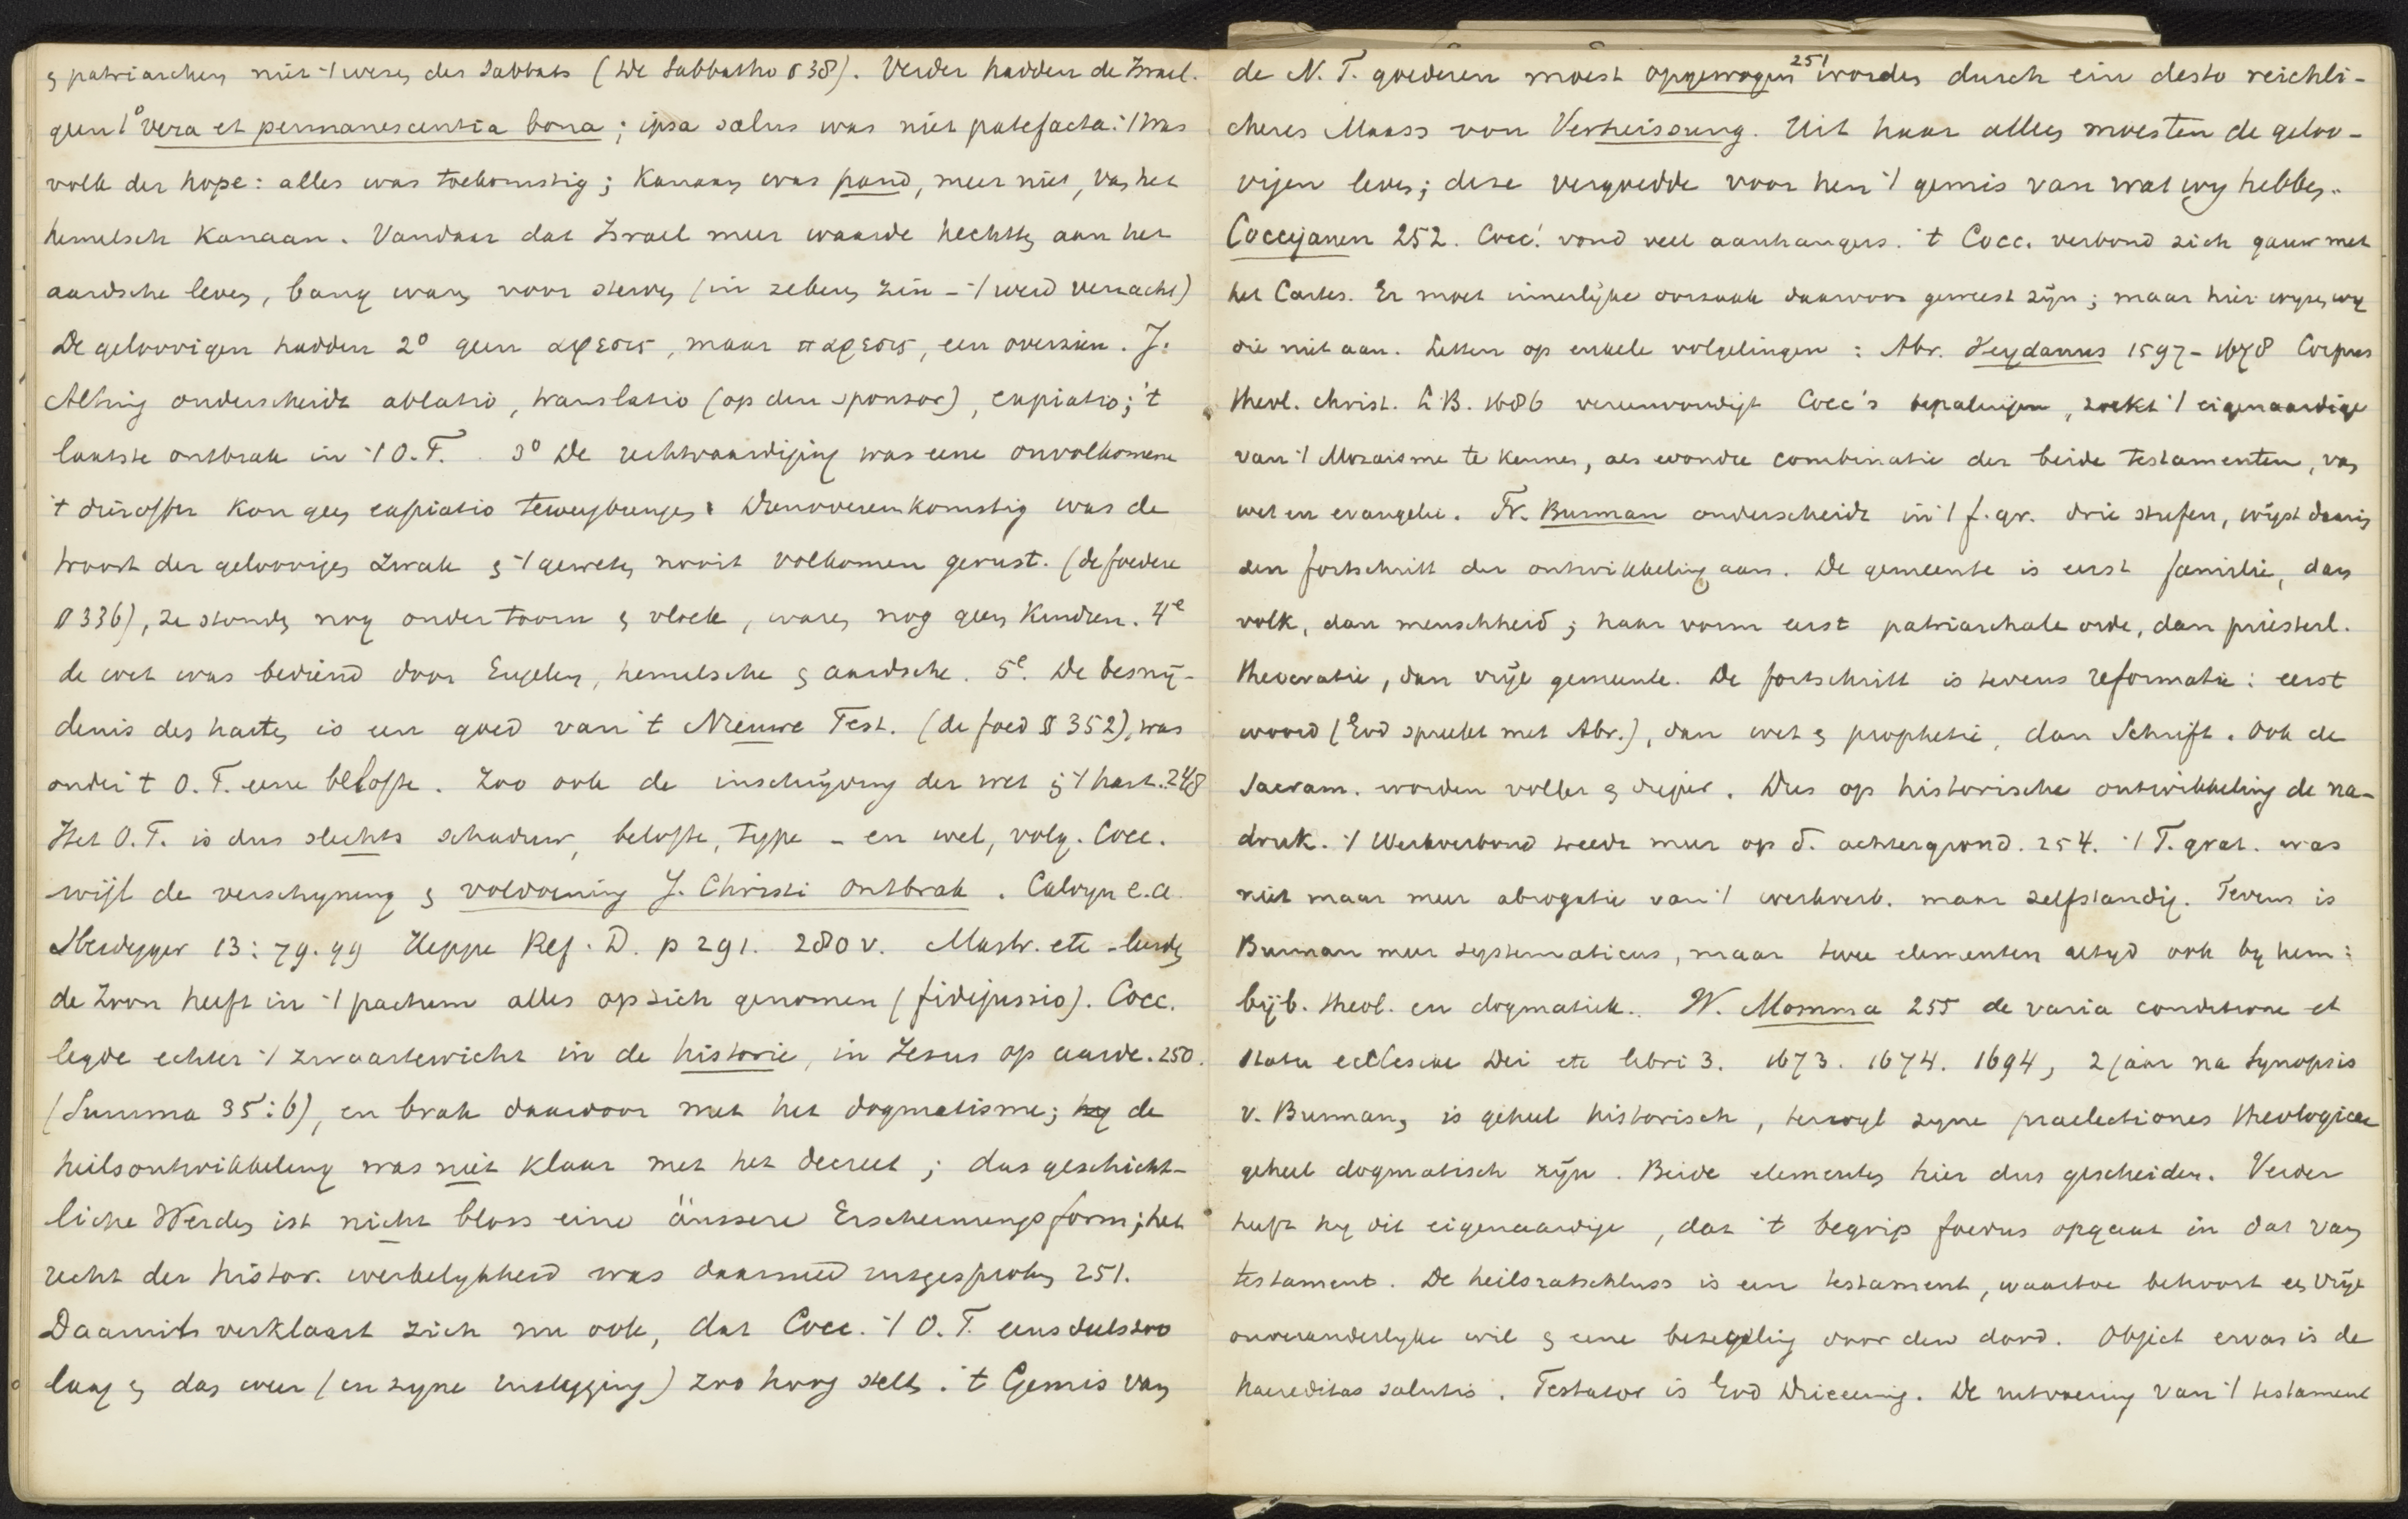 & patriarchen niet 't wezen des Sabbats (De Sabbatho § 38). Verder hadden de Israel.
geen 1° vera et permanescentia bona; ipsa salus was niet patefacta: 't was
volk der hope: alles was toekomstig; Kanaan was pand, meer niet, van het
hemelsch Kanaan. Vandaar dat Israel meer waarde hechtte aan het
aardsche leven, bang was voor sterven (in zekeren zin - 't werd verzacht)
De geloovigen hadden 2° geen αφεσις, maar παρεσις, een overzien. J.
Alting onderscheidt ablatio, translatio (op den sponsor), expiatio; 't
laatste ontbrak in 't O.T. 3° De rechtvaardiging was eene onvolkomene
't dieroffer kon geen expiatio teweegbrengen. Dienovereenkomstig was de
troost der geloovigen zwak & 't geweten nooit volkomen gerust. (de foedere
§ 336), ze stonden nog onder toorn & vloek, waren nog geen kindren. 4e
de wet was bediend door Engelen, hemelsche & aardsche. 5e. De besnij-
denis des harten is een goed van 't Nieuwe Test. (de foed § 352), was
onder 't O.T. eene belofte. Zoo ook de inschrijving der wet in 't hart. 248
Het O.T. is dus slechts schaduw, belofte, type - en wel, volg. Cocc.
wijl de verschijning & voldoening J. Christi ontbrak. Calvijn e.a.
Heidegger 13: 79. 99 Heppe Ref. D. p 291. 280 v. Mastr. etc leerden
de Zoon heeft in 't pactum alles op zich genomen (fidejussio). Cocc.
legde echter 't zwaartewicht in de historie, in Jezus op aarde. 250.
(Summa 35:6), en brak daardoor met het dogmatisme; hy de
heilsontwikkeling was niet klaar met het decreet; das geschicht-
liche Werden ist nicht bloss eine äussere Erscheinungsform; het
recht der histor. werkelijkheid was daarmeed uitgesproken 251.
Daaruit verklaart zich nu ook, dat Cocc. 't O.T. eensdeels zoo
laag & dan weer (in zijne uitlegging) zoo hoog stelt. 't Gemis van
de N.T. goederen moest opgewogen 251 worden durch ein desto reichli-
cheres Maass von Verheissung. Uit haar alleen moesten de geloo-
vigen leven; deze vergoedde voor hen 't gemis van wat wij hebben.
Coccejanen 252. Cocc. vond veel aanhangers. 't Cocc. verbond zich gauw met
het Cartes. Er moet innerlijke oorzaak daarvoor geweest zijn; maar hier wijzen wij
die niet aan. Letten op enkele volgelingen: Abr. Heydanus 1597-1678 Corpus
theol. christ. L.B. 1686 vereenvoudigt Cocc's bepalingen, zoekt 't eigenaardige
van 't Mozaisme te kennen, als eene combinatie der beide testamenten, van
wet en evangelie. Fr. Burman onderscheidt in 't f.gr. drie stufen, wijst daarin
den fortschritt der ontwikkeling aan. De gemeente is eerst familie, dan
volk, dan menschheid; haar vorm eerst patriarchale orde, dan priesterl.
theocratie, dan vrije gemeente. De fortschritt is tevens reformatie: eerst
woord (God spreekt met Abr.), dan wet & prophetie, dan Schrift. Ook de
Sacram. worden voller & dieper. Dus op historische ontwikkeling de na-
druk. 't Werkverbond treedt meer op d. achtergrond. 254. 't F. grat. was
niet maar meer abrogatie van 't werkverb. maar zelfstandig. Tevens is
Burman meer systematicus, maar twee elementen altijd ook by hem:
bijb. theol. en dogmatiek. W. Momma 255 de varia conditione et
statu ecclesiae Dei etc libri 3. 1673. 1674. 1694, 2 jaar na Synopsis
v. Burman, is geheel historisch, terwijl zijne praelectiones theologicae
geheel dogmatisch zijn. Beide elementen hier dus gescheiden. Verder
heeft hij dit eigenaardige, dat 't begrip foedus opgaat in dat van
testament. De heilsratschluss is een testament, waartoe behoort een vrije
onveranderlijke wil & eene bezegeling door den dood. Object ervan is de
haereditas salutis. Testator is God Drieeenig. De uitvoering van 't testament